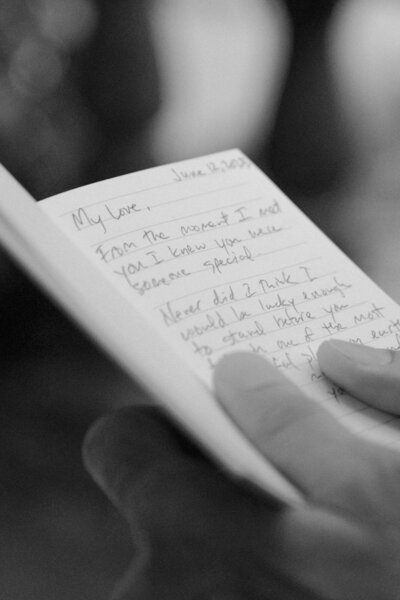 June 12, 2023
My Love,
From the moment I met
you I knew you were
someone special.
Never did I think I
would be lucky enough
to stand before you
in one of the most
on earth